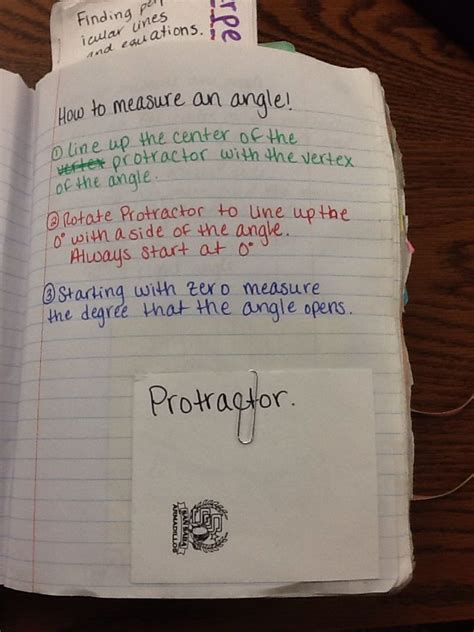 Finding per
icular lines
and equations.
How to measure an angle!
① Line up the center of the
vertex protractor with the vertex
of the angle.
② Rotate Protractor to line up the
0° with a side of the angle.
Always start at 0°
③ Starting with zero measure
the degree that the angle opens.
Protractor.
SAN SABA
ARMADILLOS